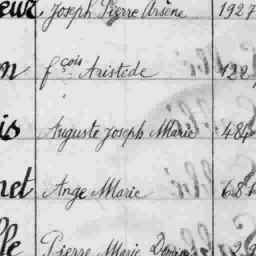 eur Joseph Pierre Arsène 1927
n fçois Aristide 122
is Auguste Joseph Marie 484
net Ange Marie 681
lle Pierre Marie